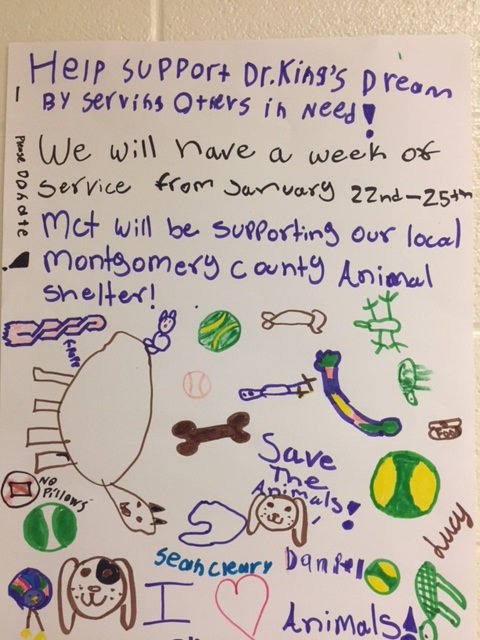 Help support Dr.King's Dream
By serving Others in Need!
Please Donate
We will have a week of
service from January 22nd-25th
Mct will be supporting our local
Montgomery county Animal
shelter!
Save
The
Animals!
NO
Pillows
Lucy
Sean Cleary
Daniel
I
Animals